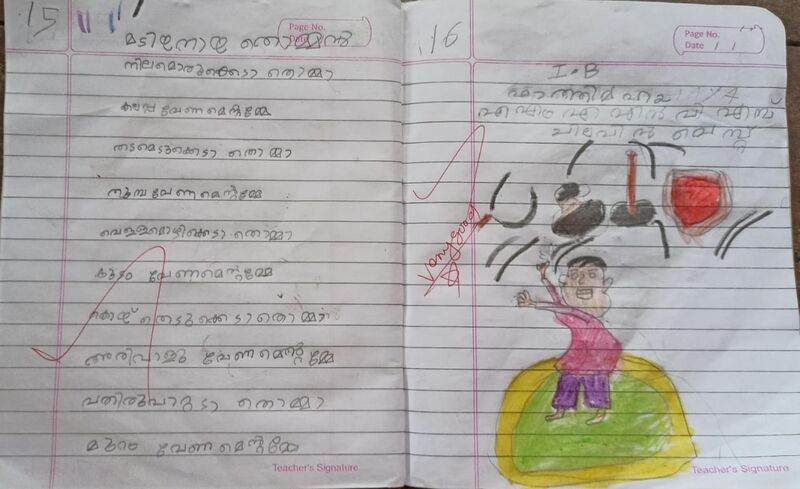 15
Page No.
മടിയനായ തൊമ്മൻ
നിലമൊരുക്കെടാ തൊമ്മാ
കലപ്പ വേണമെന്റമ്മേ
തടമെടുക്കെടാ തൊമ്മാ
തൂമ്പ വേണമെന്റമ്മേ
വെള്ളമൊഴിക്കെടാ തൊമ്മാ
കുടം വേണമെന്റമ്മേ
തെടുക്കെടാ തൊമ്മാ
അരിവാളു വേണമെന്റമ്മേ
പതിരുപാറ്റടാ തൊമ്മാ
മുറം വേണമെന്റമ്മേ
Teacher's Signature
16
Page No.
Date / /
I.B
ഫാത്തിമ
Very good
Teacher's Signature